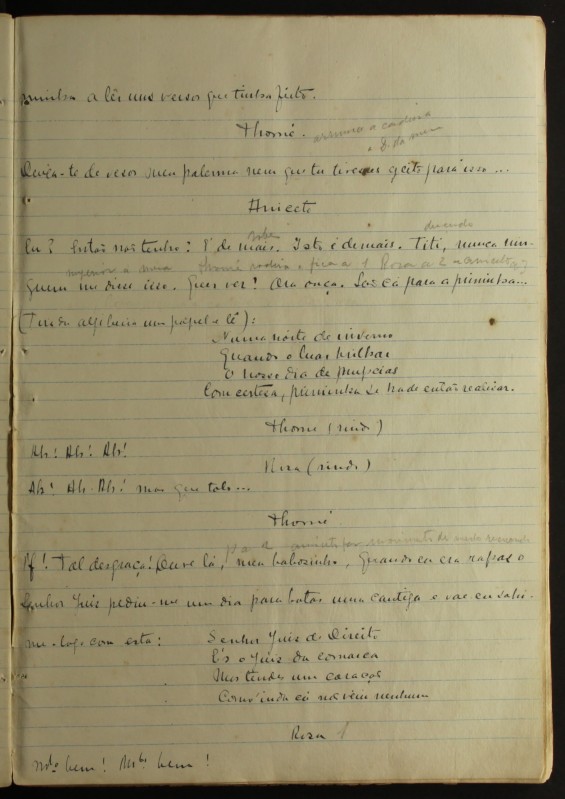 priminha a lêr uns versos que tinha feito.
Thomé.
arruma a cadeira
a D. da mesa
Deixa-te de versos meu palerma nem que tu tivesses geito para isso ...
Aniceto
sobe
Eu? Então não tenho? É de mais. Isto é demais. Titi, nunca nin-
Thomé rodeia, fica a 1 Roza a 2
guem me disse isso. Quer ver? Ora ouça. Lá cá para a priminha...
(Tira da algibeira um papel e lê):
Numa noite de inverno
Quando o luar brilhar
O nosso dia de nupcias
Com certeza, priminha se hade então realizar.
Thomé (rindo)
Ah! Ah! Ah!
Roza (rindo)
Ah! Ah. Ah! mas que tolo...
Thomé
If! Tal desgraça! Ouve lá, meu babozinho, Quando eu era rapaz o
Senhor Juiz pediu-me um dia para botar uma cantiga e vae eu sahi-
me logo com esta:
Senhor Juiz de Direito
És o Juiz da comarca
Mas tendes um
Com'inda cá não veiu nenhum
Roza
Mto bem! Mto bem!